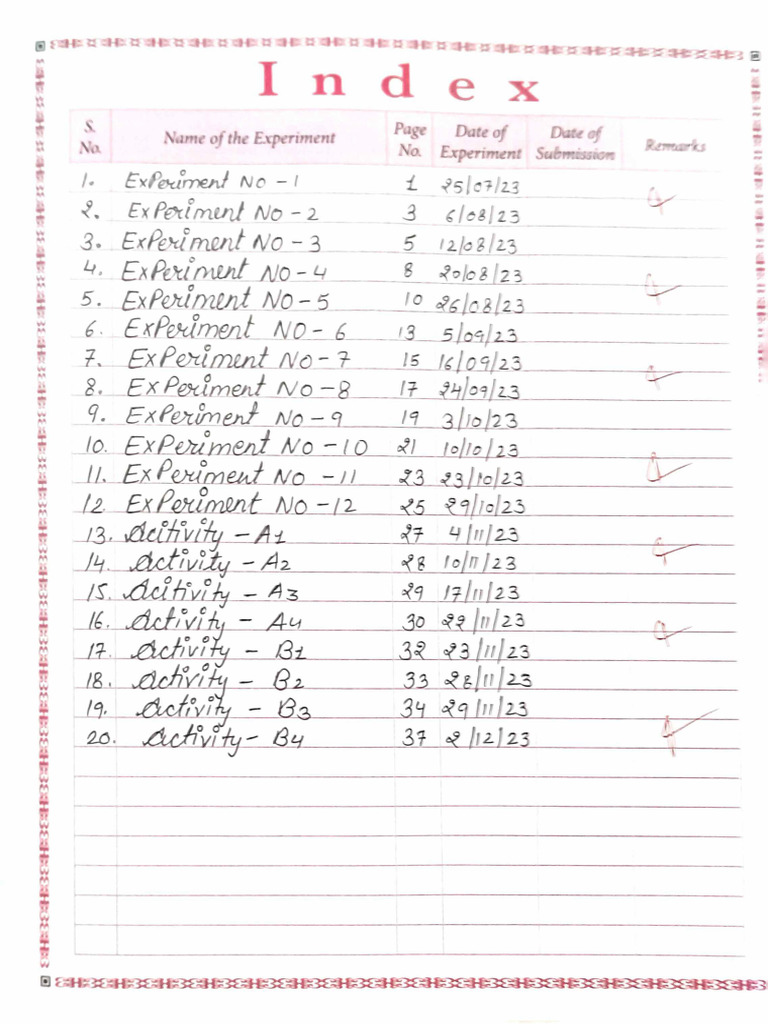 Index
S. No. Name of the Experiment Page No. Date of Experiment Date of Submission Remarks
1. Experiment No - 1 1 25/07/23
2. Experiment No - 2 3 6/08/23
3. Experiment No - 3 5 12/08/23
4. Experiment No - 4 8 20/08/23
5. Experiment No - 5 10 26/08/23
6. Experiment No - 6 13 5/09/23
7. Experiment No - 7 15 16/09/23
8. Experiment No - 8 17 24/09/23
9. Experiment No - 9 19 3/10/23
10. Experiment No - 10 21 10/10/23
11. Experiment No - 11 23 23/10/23
12. Experiment No - 12 25 29/10/23
13. Acitivity - A1 27 4/11/23
14. Activity - A2 28 10/11/23
15. Acitivity - A3 29 17/11/23
16. Activity - A4 30 22/11/23
17. Activity - B1 32 23/11/23
18. Activity - B2 33 28/11/23
19. Activity - B3 34 29/11/23
20. Activity - B4 37 2/12/23